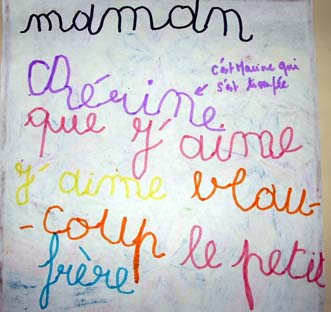 maman
chérine
c'est Marine qui
s'est trompée
que j'aime
j'aime blau-
-coup le petit
frère